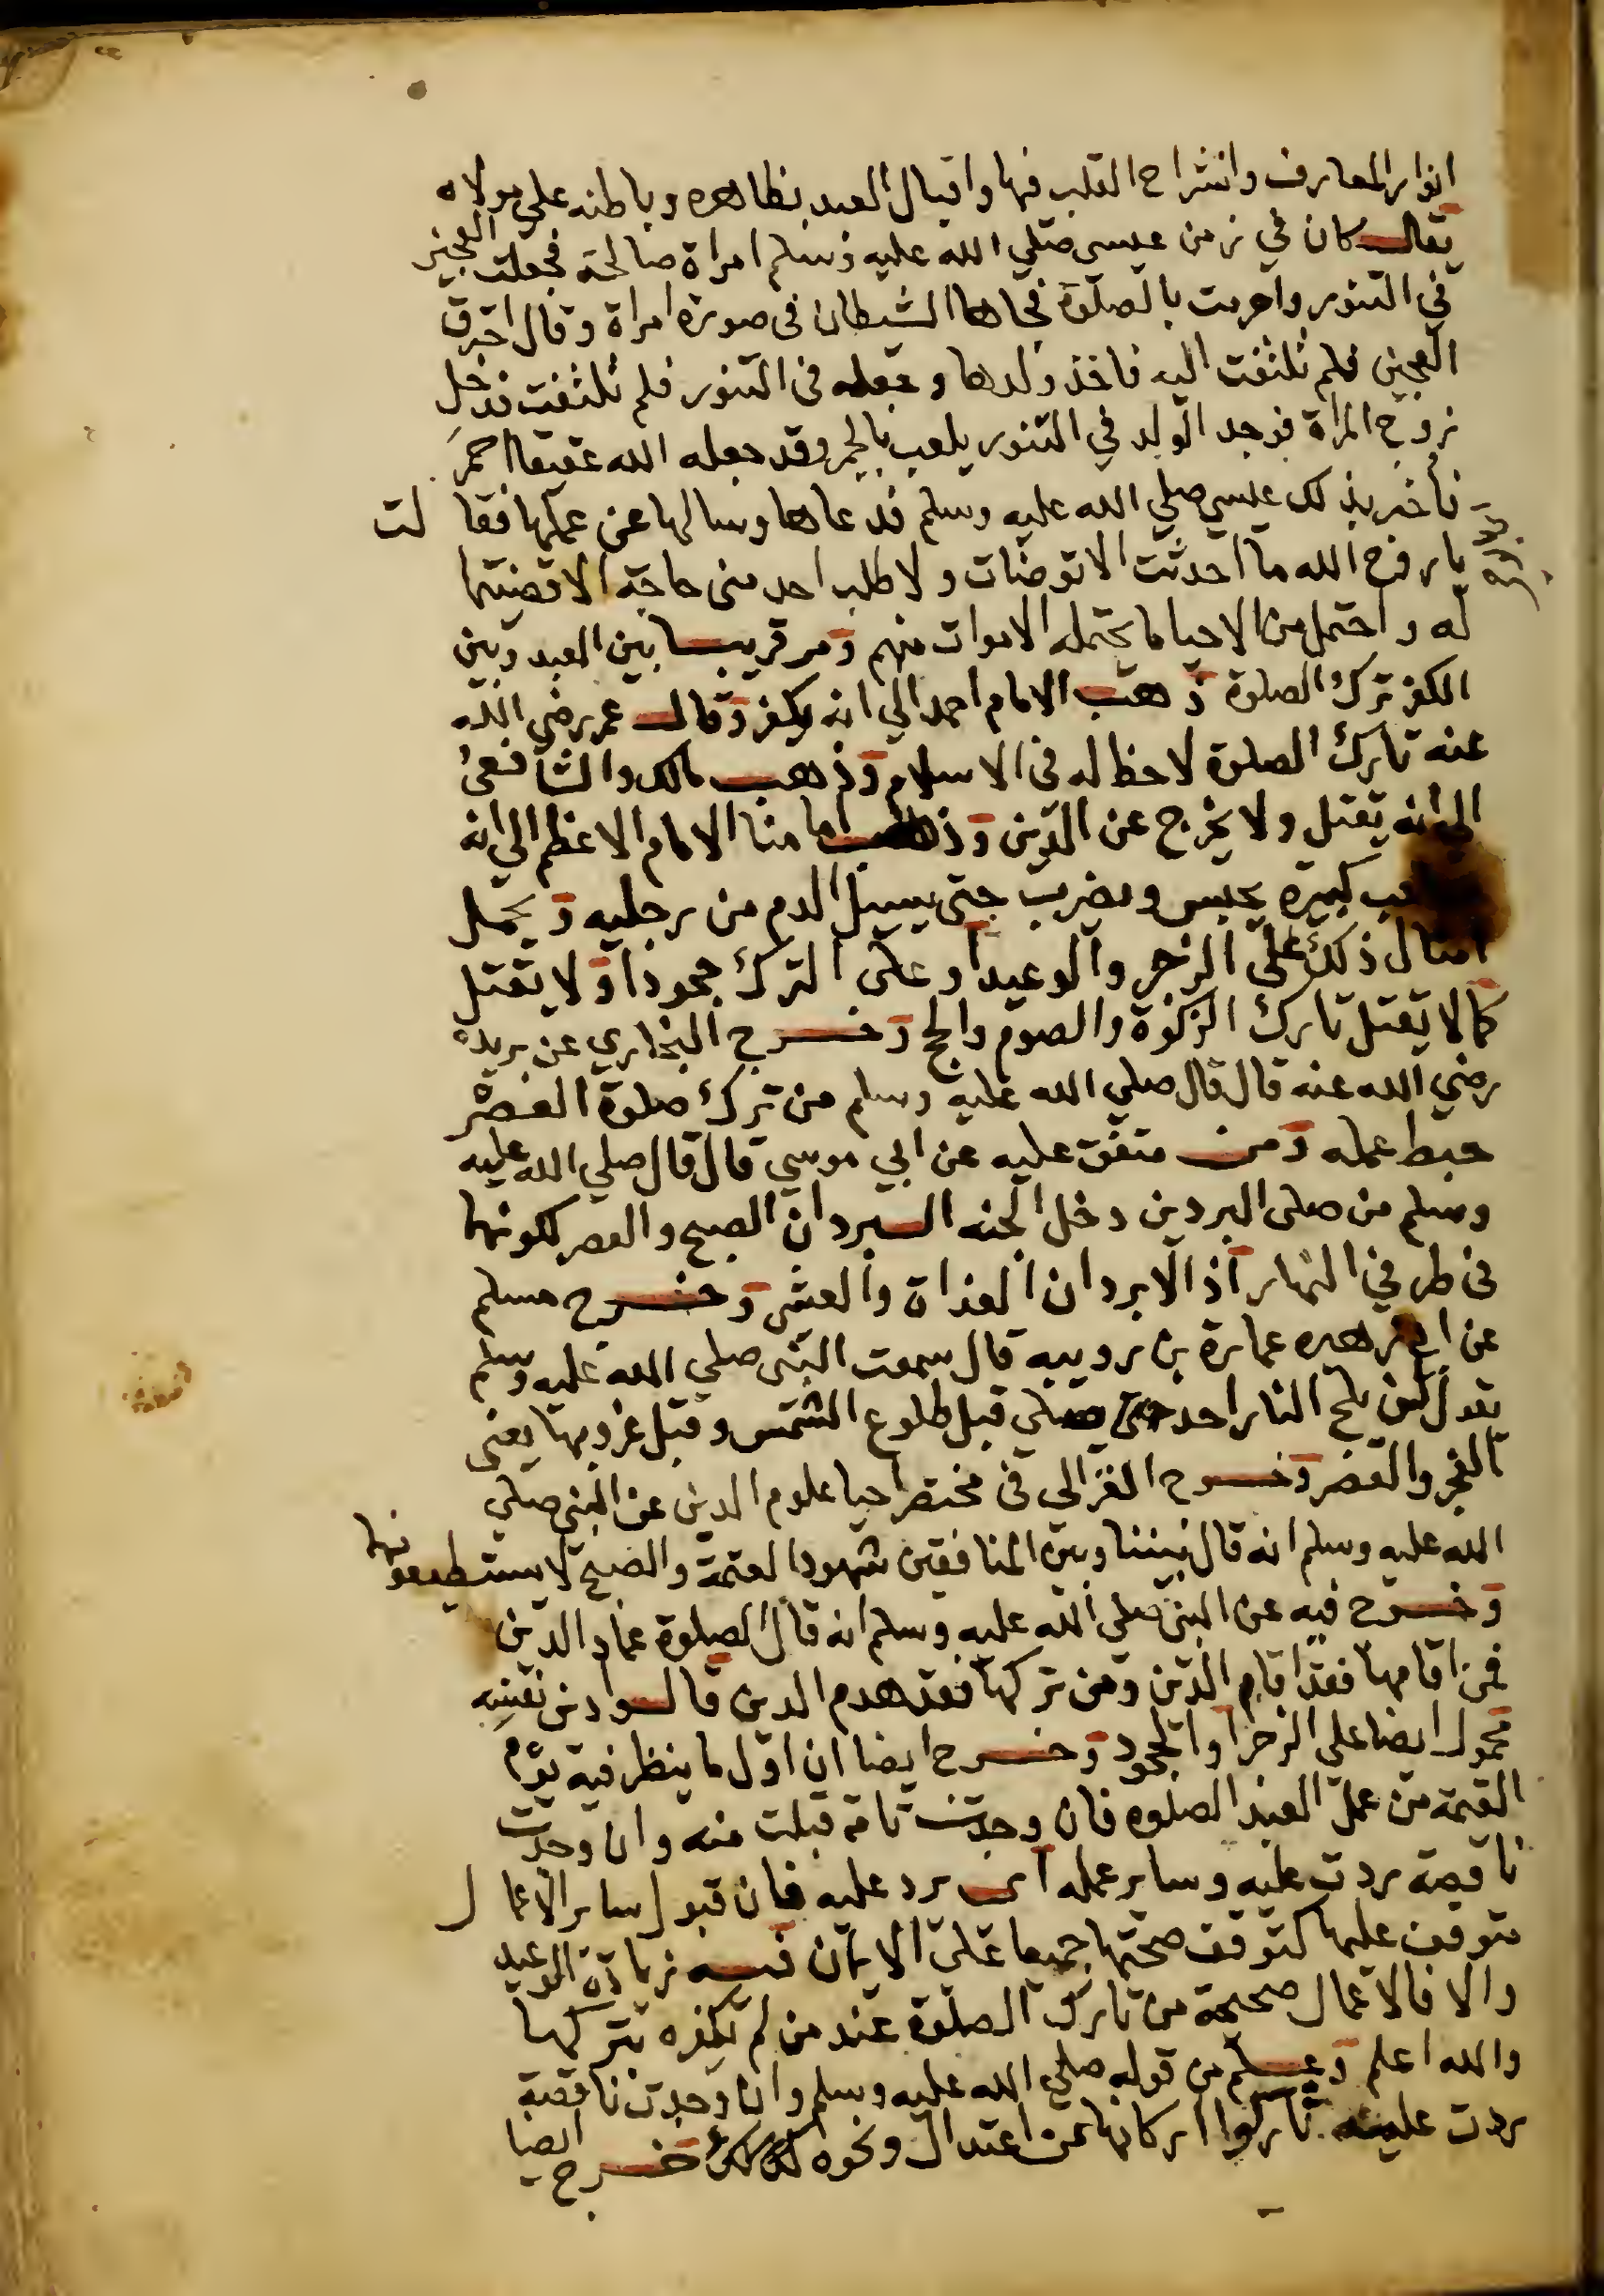 انوار المعارف وانشراح القلب فيها واقبال العبد بظاهره وباطنه على مولاه
يقال كان في زمن عيسى صلي الله عليه وسلم امراة صالحة فجعلت العجين
في التنور واحرمت بالصلوة فجاها الشيطان فى صورة امراة وقال احترق
العجين فلم تلتفت اليه فاخذ ولدها وجعله فى التنور فلم تلتفت فدخل
زوج المراة فوجد الولد في التنور يلعب بالجمر وقد جعله الله عقيقا احمر
فاخبر بذلك عيسي صلي الله عليه وسلم فدعاها وسالها عن عملها فقالت
يا روح الله ما احدثت الا توضات ولا طلب احد منى حاجة الا قضيتها
له واحتمل من الاحيا ما يحتمله الاموات منهم ومر قريبا بين العبد وبين
الكفر ترك الصلوة ذهب الامام احمد الي انه يكفر وقال عمر رضى الله
عنه تارك الصلوة لاحظ له فى الاسلام وذهب مالك والشافعى
الي انه يقتل ولا يخرج عن الدين وذهب امامنا الامام الاعظم الي انه
كبيرة يحبس ويضرب حتى يسيل الدم من رجليه ويحمل
امثال ذلك على الزجر والوعيد او على الترك جحودا ولا يقتل
كما لا يقتل تارك الزكوة والصوم والحج وخرج البخاري عن بريدة
رضي الله عنه قال قال صلي الله عليه وسلم من ترك صلوة العصر
حبط عمله ومن متفق عليه عن ابي موسي قال قال صلي الله عليه
وسلم من صلى البردين دخل الجنه البردان الصبح والعصر لكونهما
فى طرفي النهار اذ الابردان الغداة والعشى وخرج مسلم
عن ابي زهير عمارة بن رويبه قال سمعت النبى صلي الله عليه وسلم
يقول لن يلج النار احد صلي قبل طلوع الشمس وقبل غروبها يعنى
الفجر والعصر وخرج الغزالي فى مختصر احيا علوم الدين عن النبى صلي
الله عليه وسلم انه قال بيننا وبين المنافقين شهود العتمة والصبح لا يستطيعونها
وخرج فيه عن النبى صلي الله عليه وسلم انه قال الصلوة عماد الدين
فمن اقامها فقد اقام الدين ومن تركها فقد هدم الدين قالوا دين نفسه
محمول ايضا على الزجر او الجحود وخرج ايضا ان اول ما ينظر فيه يوم
القيمة من عمل العبد الصلوه فان وجدت تامة قبلت منه وان وجدت
ناقصة ردت عليه وساير عمله اى يرد عليه فان قبول ساير الاعمال
متوقف عليها كتوقف صحتها جميعا على الايمان فيه زيادة الوعيد
والا فالاعمال صحيحة من تارك الصلوة عند من لم يكفره بتركها
والله اعلم وعلم من قوله صلي الله عليه وسلم وان وجدت ناقصة
ردت عليه تاركوا اركانها من اعتدال ونحوه خرج ايضا